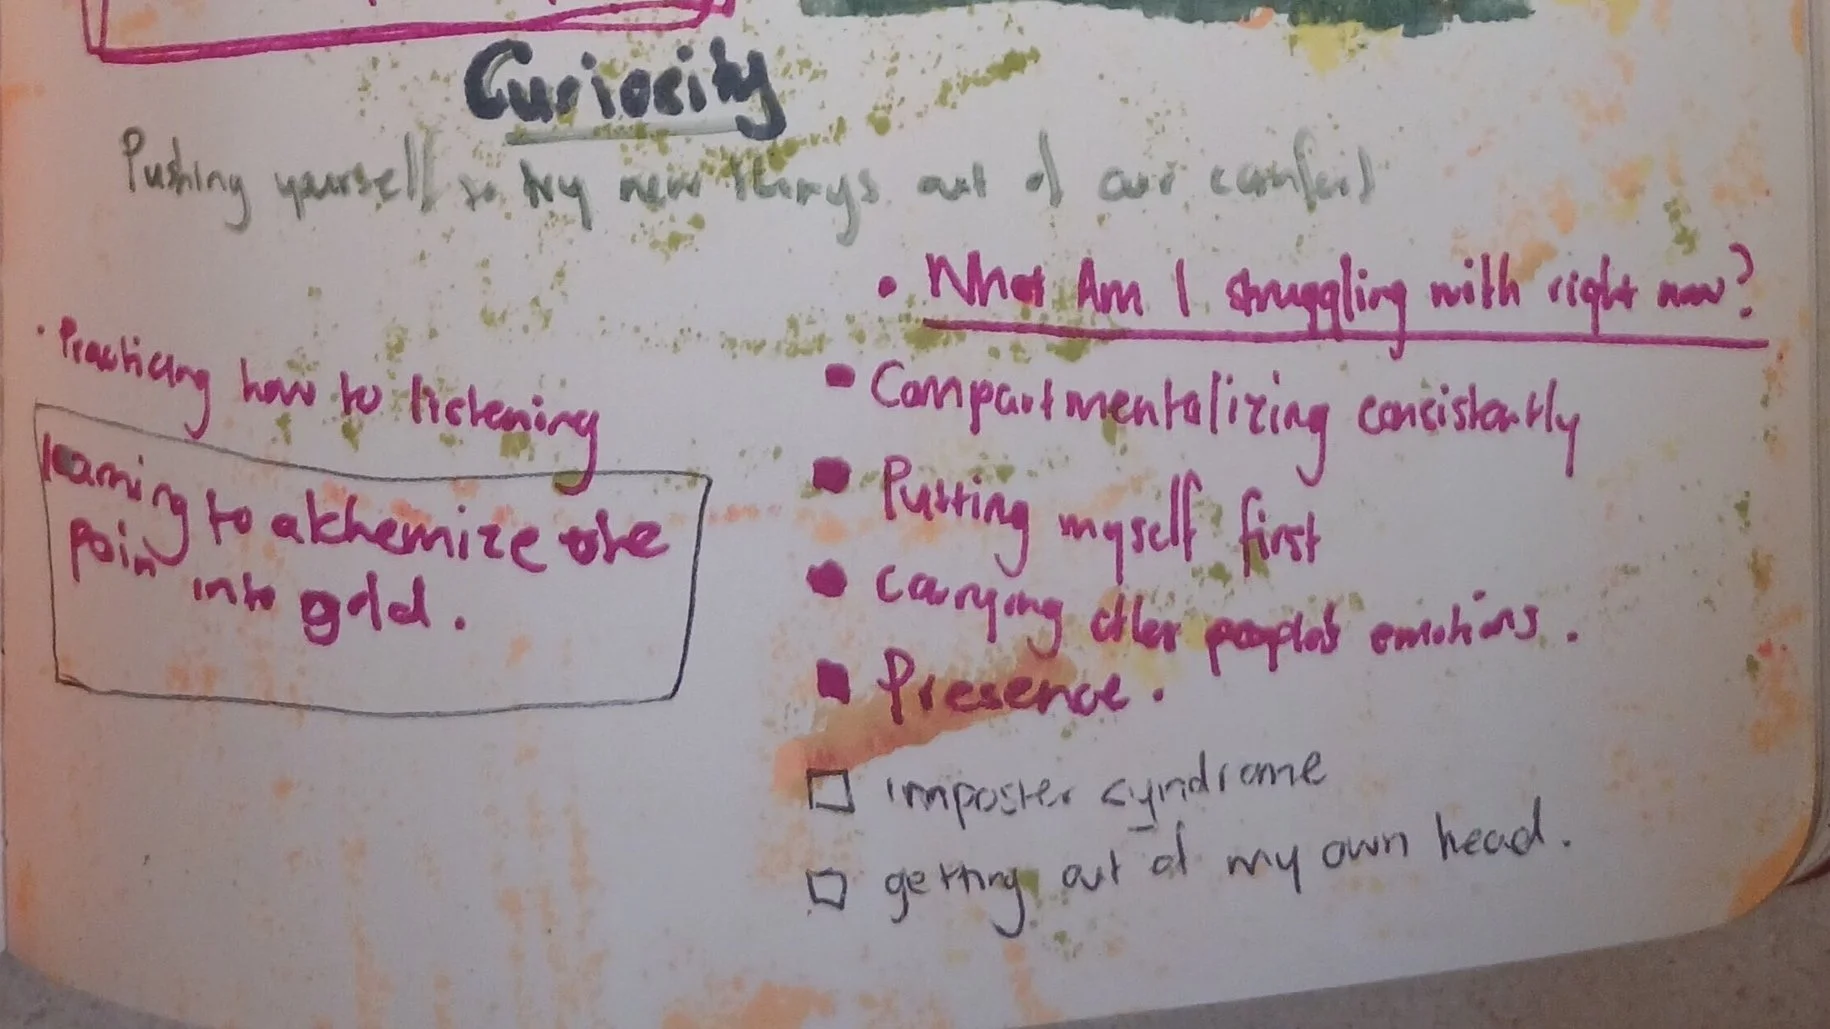 Curiosity
Pushing yourself to try new things out of our comfort
• Practicing how to listening
learning to alchemize the
pain into gold.
• What Am I struggling with right now?
Compartmentalizing consistently
Putting myself first
Carrying other people's emotions.
Presence.
imposter syndrome
getting out of my own head.